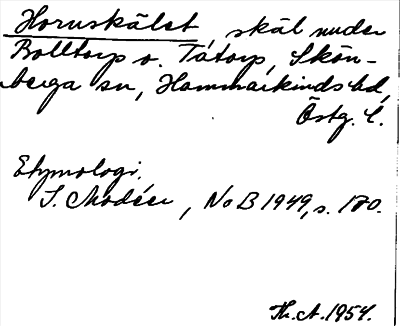 Hornskålet, skäl under
Bolltorp o. Tåtorp, Skön-
berga sn, Hammarkinds hd,
Östg. l.
Etymologi.
I. Modéer, NoB 1949, s. 180.
Th. A. 1954.